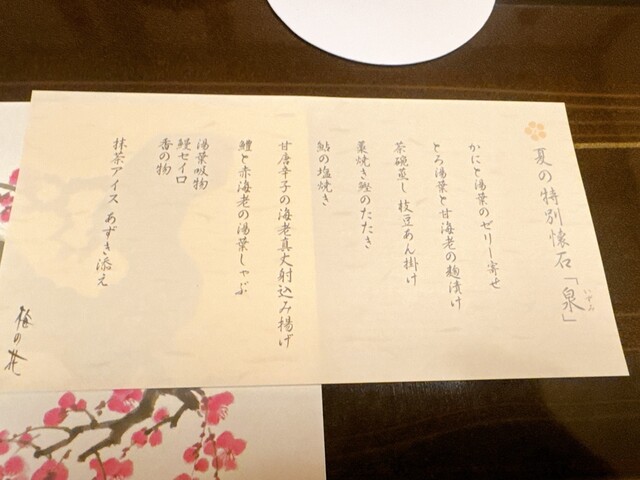 夏の特別懐石「泉」
いずみ
かにと湯葉のゼリー寄せ
とろ湯葉と甘海老の麹漬け
茶碗蒸し 枝豆あん掛け
藁焼き鰹のたたき
鮎の塩焼き
甘唐辛子の海老真丈射込み揚げ
鱧と赤海老の湯葉しゃぶ
湯葉吸物
鰻セイロ
香の物
抹茶アイス あずき添え
梅の花